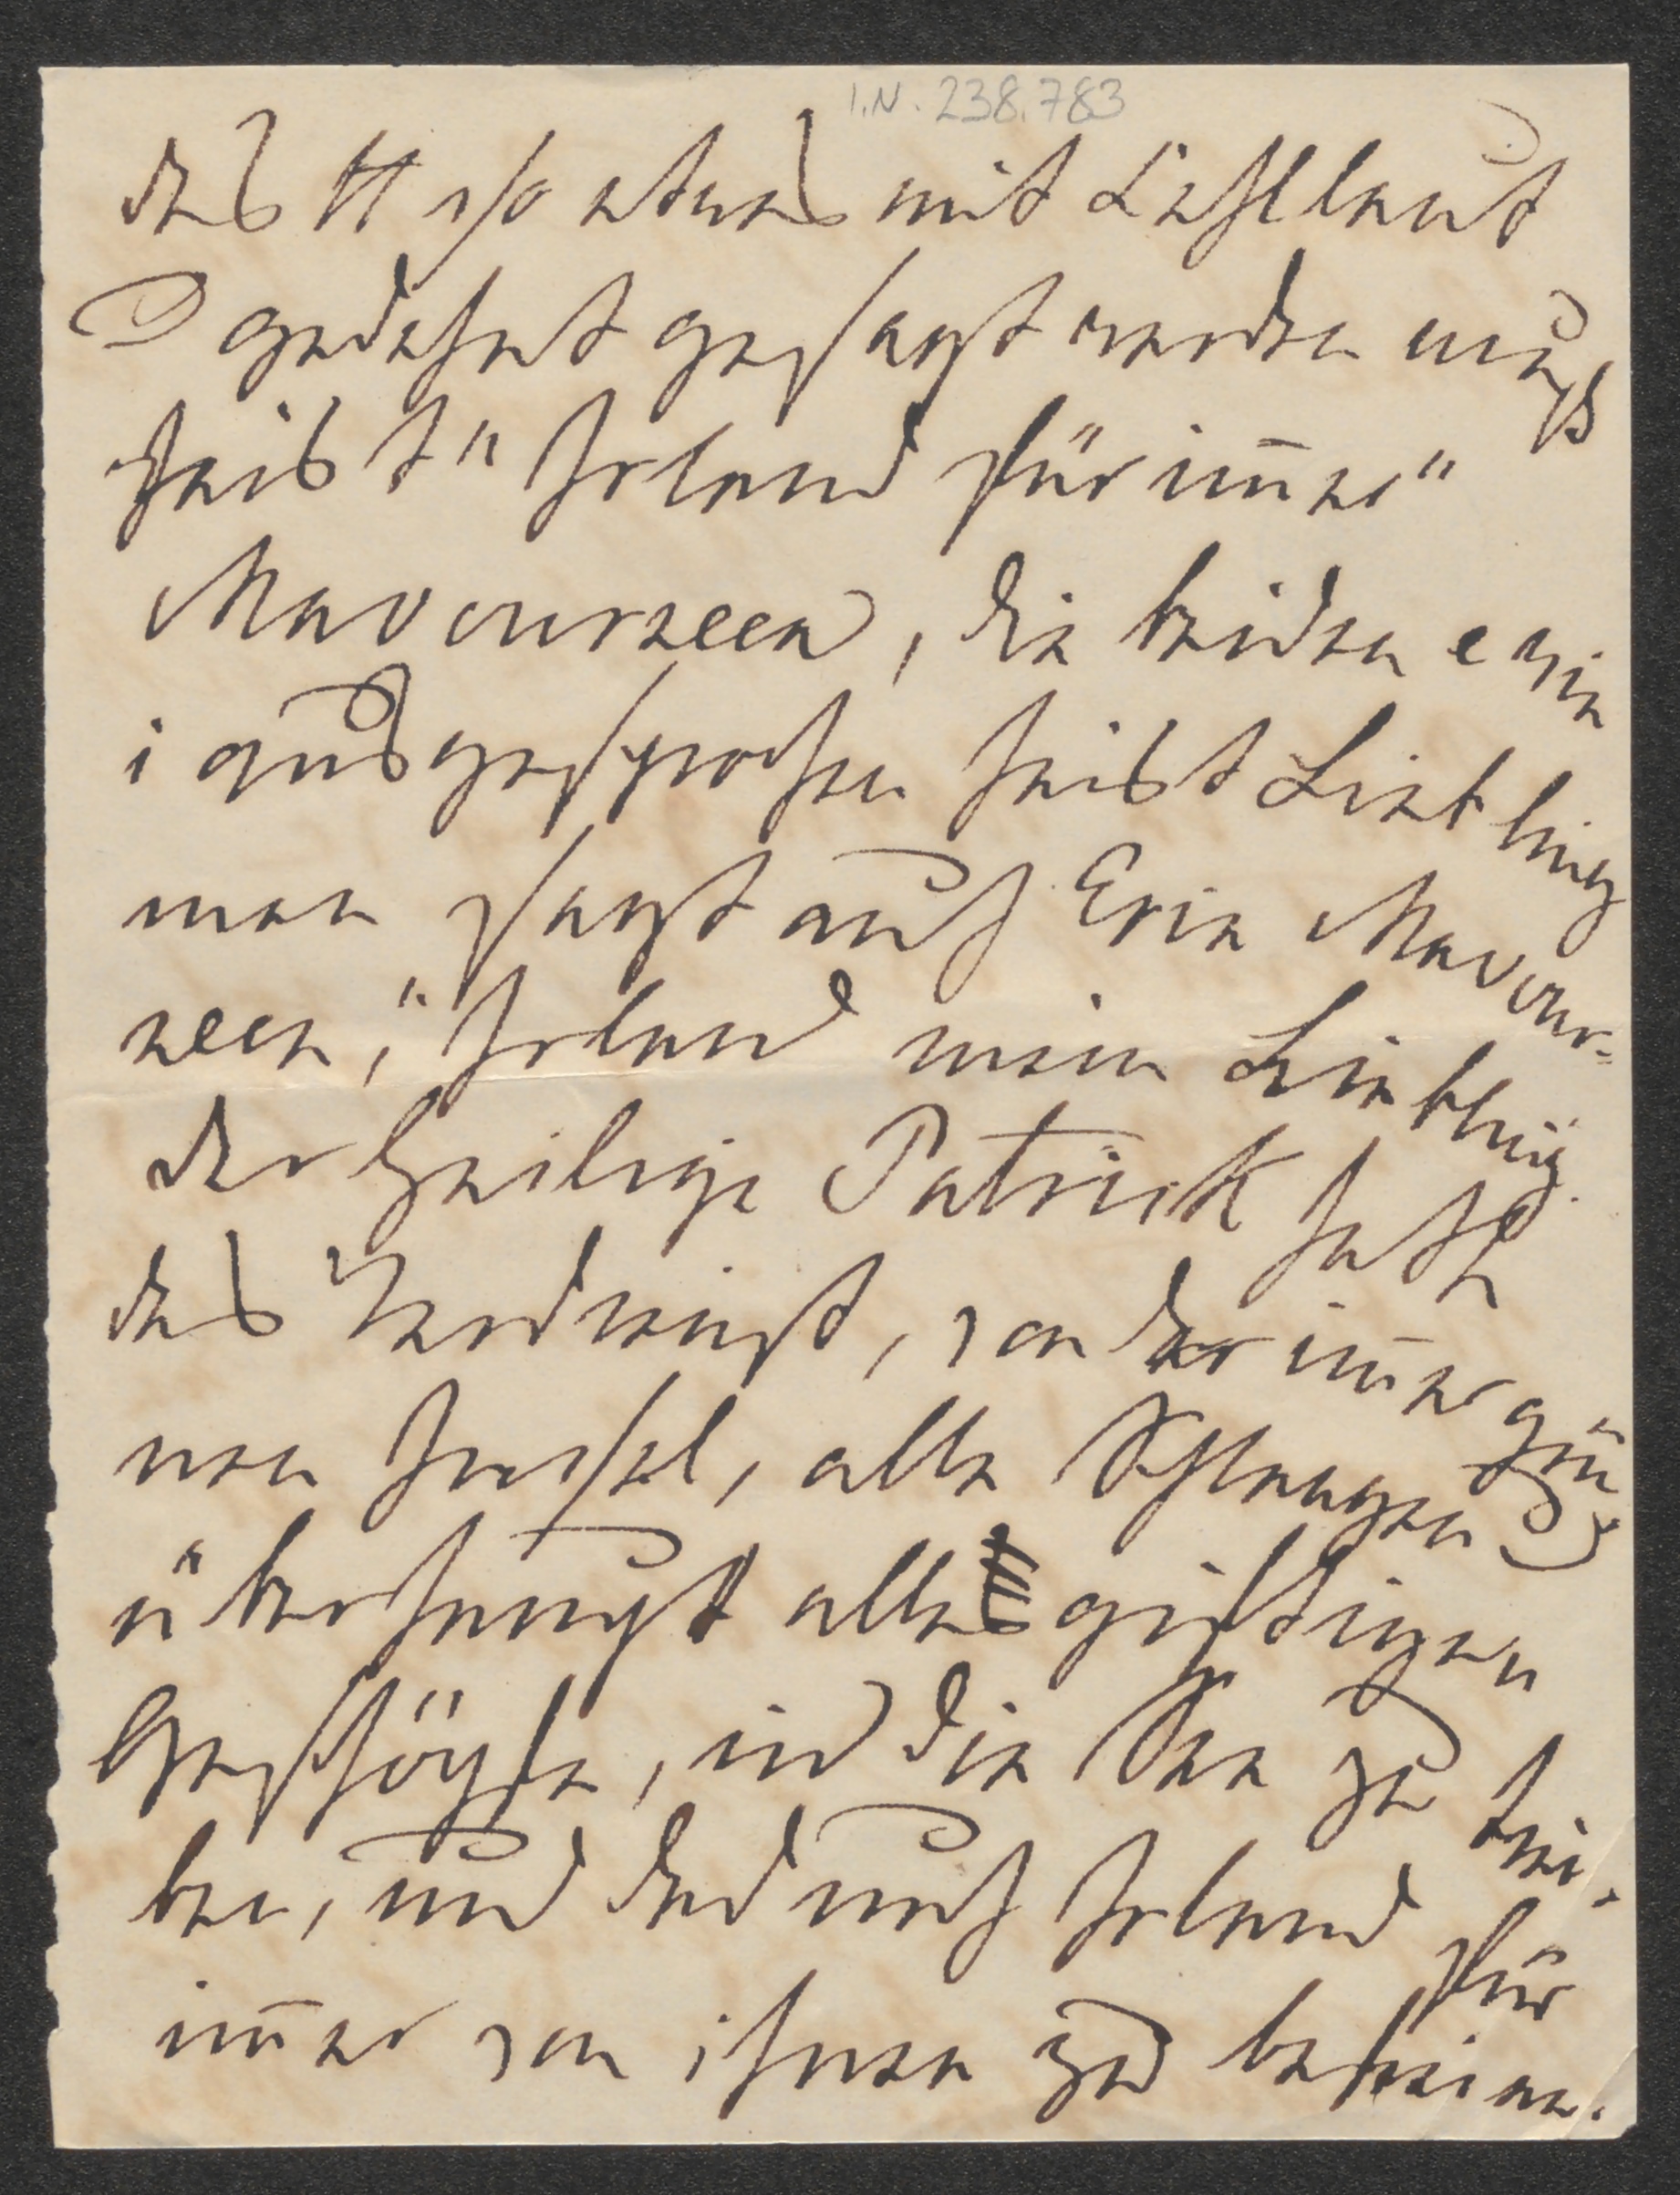 I.N. 238.783
das H so etwas mit Kehllaut
gedehnt gesagt werden muß
heist " Irland für im̄er"
Mavourneen, die beiden e wie
i ausgesprochen heist Liebling
man sagt auch Erin Mavour-
neen, "Irland mein Liebling
der heilige Patrick hatte
das Verdienst, von der im̄er grü
nen Insel, alle Schlangen
überhaupt alle giftigen
Geschöpfe, in die See zu trei-
ben, und dadurch Irland für
im̄er von ihnen zu befreien.